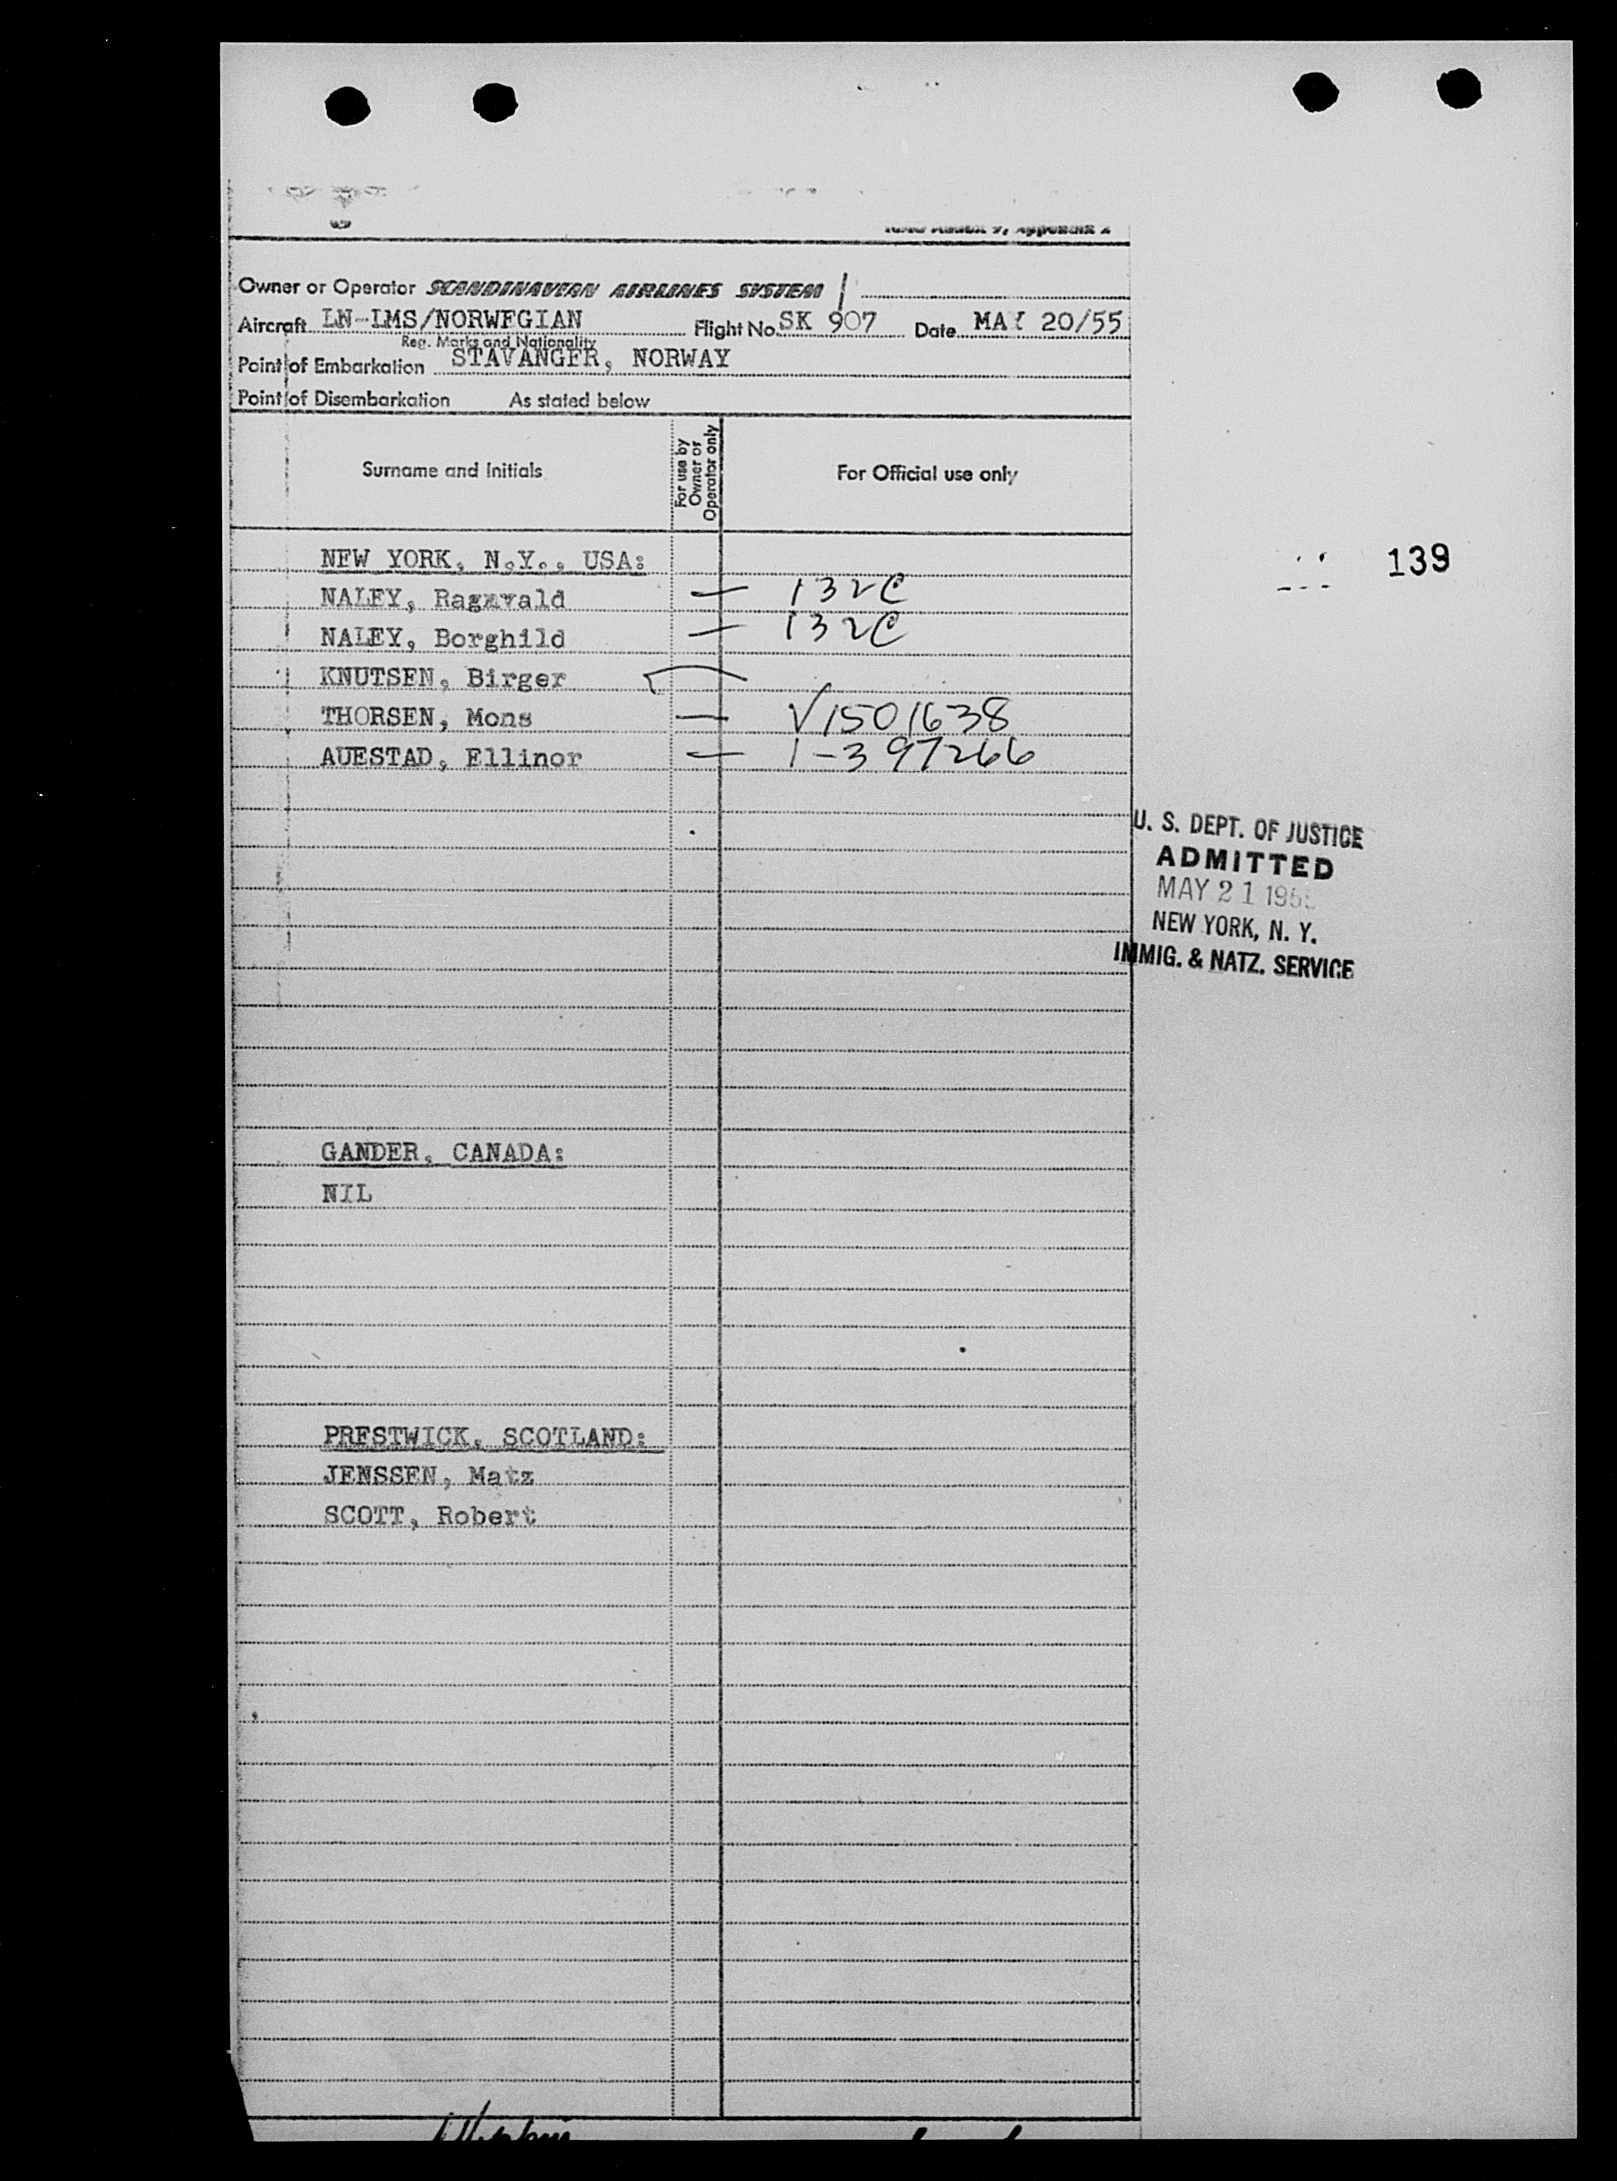 ICAO Annex 9, Appendix 2
Owner or Operator SCANDINAVIAN AIRLINES SYSTEM
Aircraft LN-LMS/NORWEGIAN Flight No. SK 907 Date MAY 20/55
Reg. Marks and Nationality
Point of Embarkation STAVANGER, NORWAY
Point of Disembarkation As stated below
Surname and Initials
For use by Owner or Operator only
For Official use only
NEW YORK, N.Y., USA:
139
NALEY, Ragnvald — 132C
NALEY, Borghild — 132C
KNUTSEN, Birger
THORSEN, Mons — V1501638
AUESTAD, Ellinor — 1-397266
U. S. DEPT. OF JUSTICE
ADMITTED
MAY 21 1955
NEW YORK, N. Y.
IMMIG. & NATZ. SERVICE
GANDER, CANADA:
NIL
PRESTWICK, SCOTLAND:
JENSSEN, Matz
SCOTT, Robert